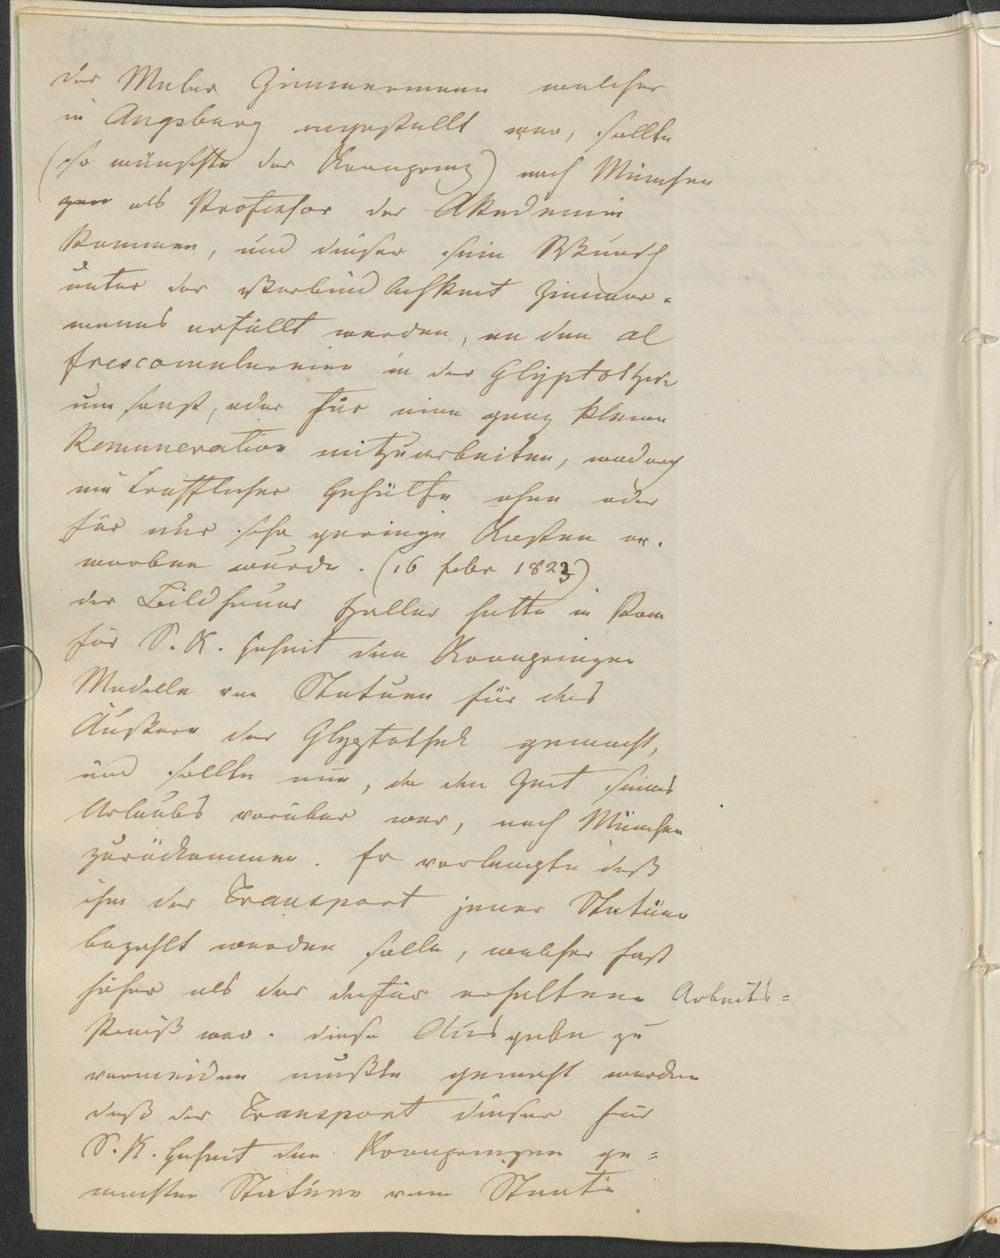 der Maler Zimmermann welcher
in Augsburg angestellt war, sollte
(so wünschte der Kronprinz) nach München
als Professor der Akademie
kommen, und dieser sein Wunsch
unter der Verbindlichkeit Zimmer-
manns erfüllt werden, an den al
frescomalereien in der Glyptothek
umsonst, oder für eine ganz kleine
Remuneration mitzuarbeiten, wodurch
ein trefflicher Gehülfe ohne oder
für nur sehr geringe Kosten er-
worben wurde. (16 febr 1823)
der Bildhauer Haller hatte in Rom
für S. K. Hoheit den Kronprinzen
Modelle von Statuen für das
Äußere der Glyptothek gemacht,
und sollte nun, da die Zeit seines
Urlaubs vorüber war, nach München
zurückkommen. Er verlangte daß
ihm der Transport jener Statuen
bezahlt werden solle, welcher fast
höher als der dafür erhaltene Arbeits=
Preiß war. diese Ausgabe zu
vermeiden mußte gemacht werden
daß der Transport dieser für
S. K. Hoheit den Kronprinzen ge=
machten Statuen vom Staate